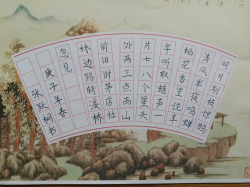 明月别枝惊鹊
清风半夜鸣蝉
稻花香里说丰
年听取蛙声一
片七八个星天
外两三点雨山
前旧时茅店社
林边路转溪桥
忽见
庚子年春
张跃桐书